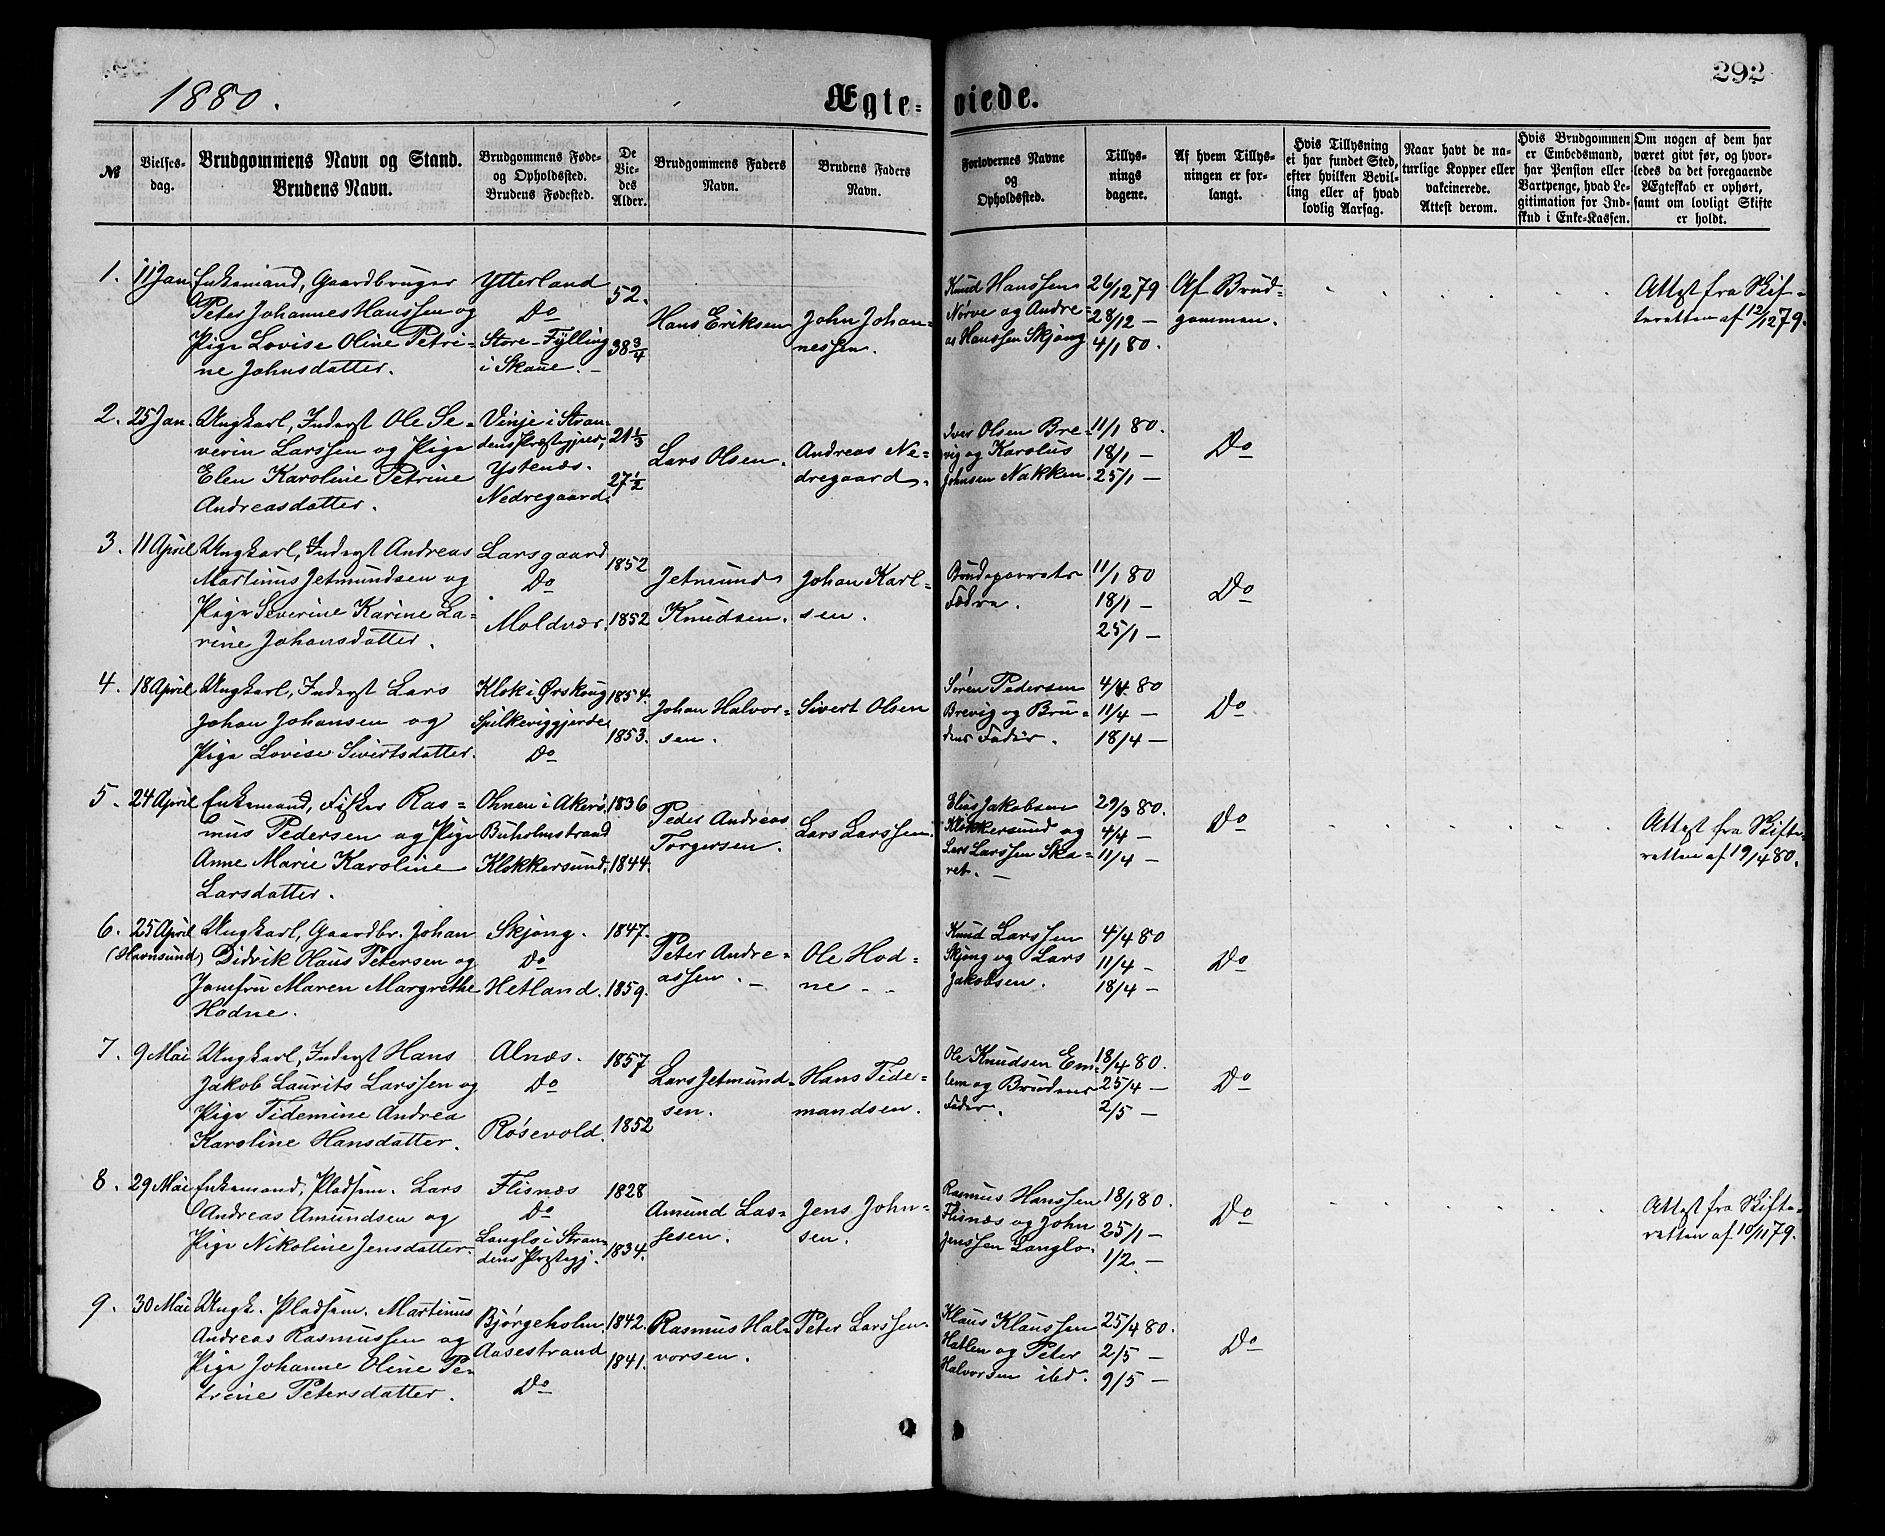 1880.
Ægte=
viede.
292
№
Vielses-
dag.
Brudgommens Navn og Stand.
Brudens Navn.
Brudgommens Føde-
og Opholdssted.
Brudens Fødested.
De
Vie-
des
Alder.
Brudgommens Faders
Navn.
Brudens Faders
Navn.
Forlovernes Navne
og
Opholdssted.
Tillys-
nings
dagene.
Af hvem Tillys-
ningen er for-
langt.
Hvis Tillysning
ei har fundet Sted,
efter hvilken Bevil-
ling eller af hvad
lovlig Aarsag.
Naar havt de na-
turlige Kopper eller
vakcinerede.
Attest derom.
Hvis Brudgommen
er Embedsmand,
har Pension eller
Vartpenge, hvad Le-
gitimation for Ind-
skud i Enke-Kassen.
Om nogen af dem har
været givt før, og hvor-
ledes da det foregaaende
Ægteskab er ophørt,
samt om lovligt Skifte
er holdt.
1.
11 Jan
Enkemand, Gaardbruger
Peter Johannes Hanssen og
Pige Lovise Oline Petri-
ne Johnsdatter.
Ytterland
Do
Store-Fylling
i Skaue.
52.
38 3/4
Hans Eriksen
John Johan-
nessen.
Knud Hanssen
Nørve og Andre-
as Hanssen Skjong
26/12 79
28/12 —
4/1 80.
Af Brud-
gommen.
Attest fra Skif-
teretten af 12/12 79.
2.
25 Jan.
Ungkarl, Inderst Ole Se-
verin Larssen og Pige
Elen Karoline Petrine
Andreasdatter.
Vinje i Stran-
dens Præstegjæld,
Ystenæs.
Nedregaard.
21 1/3
27 1/2
Lars Olsen.
Andreas Ne-
dregaard.
Iver Olsen Bre-
vig og Karolus
Johnsen Nakken
11/1 80.
18/1 —
25/1 —
Do
3.
11 April
Ungkarl, Inderst Andreas
Martinus Jetmundsen og
Pige Severine Karine La-
rine Johansdatter.
Larsgaard
Do
Moldvær.
1852
1852
Jetmund
Knudsen.
Johan Karl-
sen.
Brudeparrets
Fædre.
11/1 80
18/1 —
25/1 —
Do
4.
18 April
Ungkarl, Inderst Lars
Johan Johansen og
Pige Lovise Sivertsdatter.
Klok i Ørskoug
Spilkeviggjerde
Do
1854.
1853.
Johan Halvor-
sen.
Sivert Olsen
Søren Pedersen
Brevig og Bru-
dens Fader.
4/4 80
11/4 —
18/4 —
Do
5.
24 April
Enkemand, Fisker Ras-
mus Pedersen og Pige
Anne Marie Karoline
Larsdatter.
Ohnen i Akerø.
Buholmstrand
Klokkersund.
1836
1844.
Peder Andreas
Torgersen.
Lars Larssen.
Elias Jakobsen
Klokkersund og
Lars Larssen Ska-
ret.
29/3 80.
4/4 —
11/4 —
Do
Attest fra Skifte-
retten af 19/4 80.
6.
25 April
(Havnsund)
Ungkarl, Gaardbr. Johan
Didrik Haus Petersen og
Jomfru Maren Margrethe
Hodne.
Skjong.
Do
Hetland.
1847.
1859.
Peter Andre-
assen.
Ole Hod-
ne
Knud Larssen
Skjong og Lars
Jakobsen.
4/4 80
11/4 —
18/4 —
Do
7.
9 Mai
Ungkarl, Inderst Hans
Jakob Laurits Larssen og
Pige Tidemine Andrea
Karoline Hansdatter.
Alnæs.
Do
Røsevold.
1857
1852
Lars Jetmund-
sen.
Hans Tide-
mandsen.
Ole Knudsen Em-
lem og Brudens
Fader.
18/4 80.
25/4 —
2/5 —
Do
8.
29 Mai
Enkemand, Pladsm. Lars
Andreas Amundsen og
Pige Nikoline Jensdatter.
Flisnæs
Do
Langlo i Stran-
dens Præstegj.
1828
1834.
Amund Las-
sesen.
Jens John-
sen.
Rasmus Hanssen
Flisnæs og John
Jenssen Langlo.
18/1 80.
25/1 —
1/2. —
Do
Attest fra Skifte-
retten af 10/11 79.
9.
30 Mai
Ungk. Pladsm. Martinus
Andreas Rasmussen og
Pige Johanne Oline Pe-
trine Petersdatter.
Bjørgeholm.
Aasestrand
Do
1842.
1841.
Rasmus Hal-
vorsen.
Peter Larssen.
Klaus Klaussen
Hatlen og Peter
Halvorsen ibd.
25/4 80.
2/5 —
9/5 —
Do